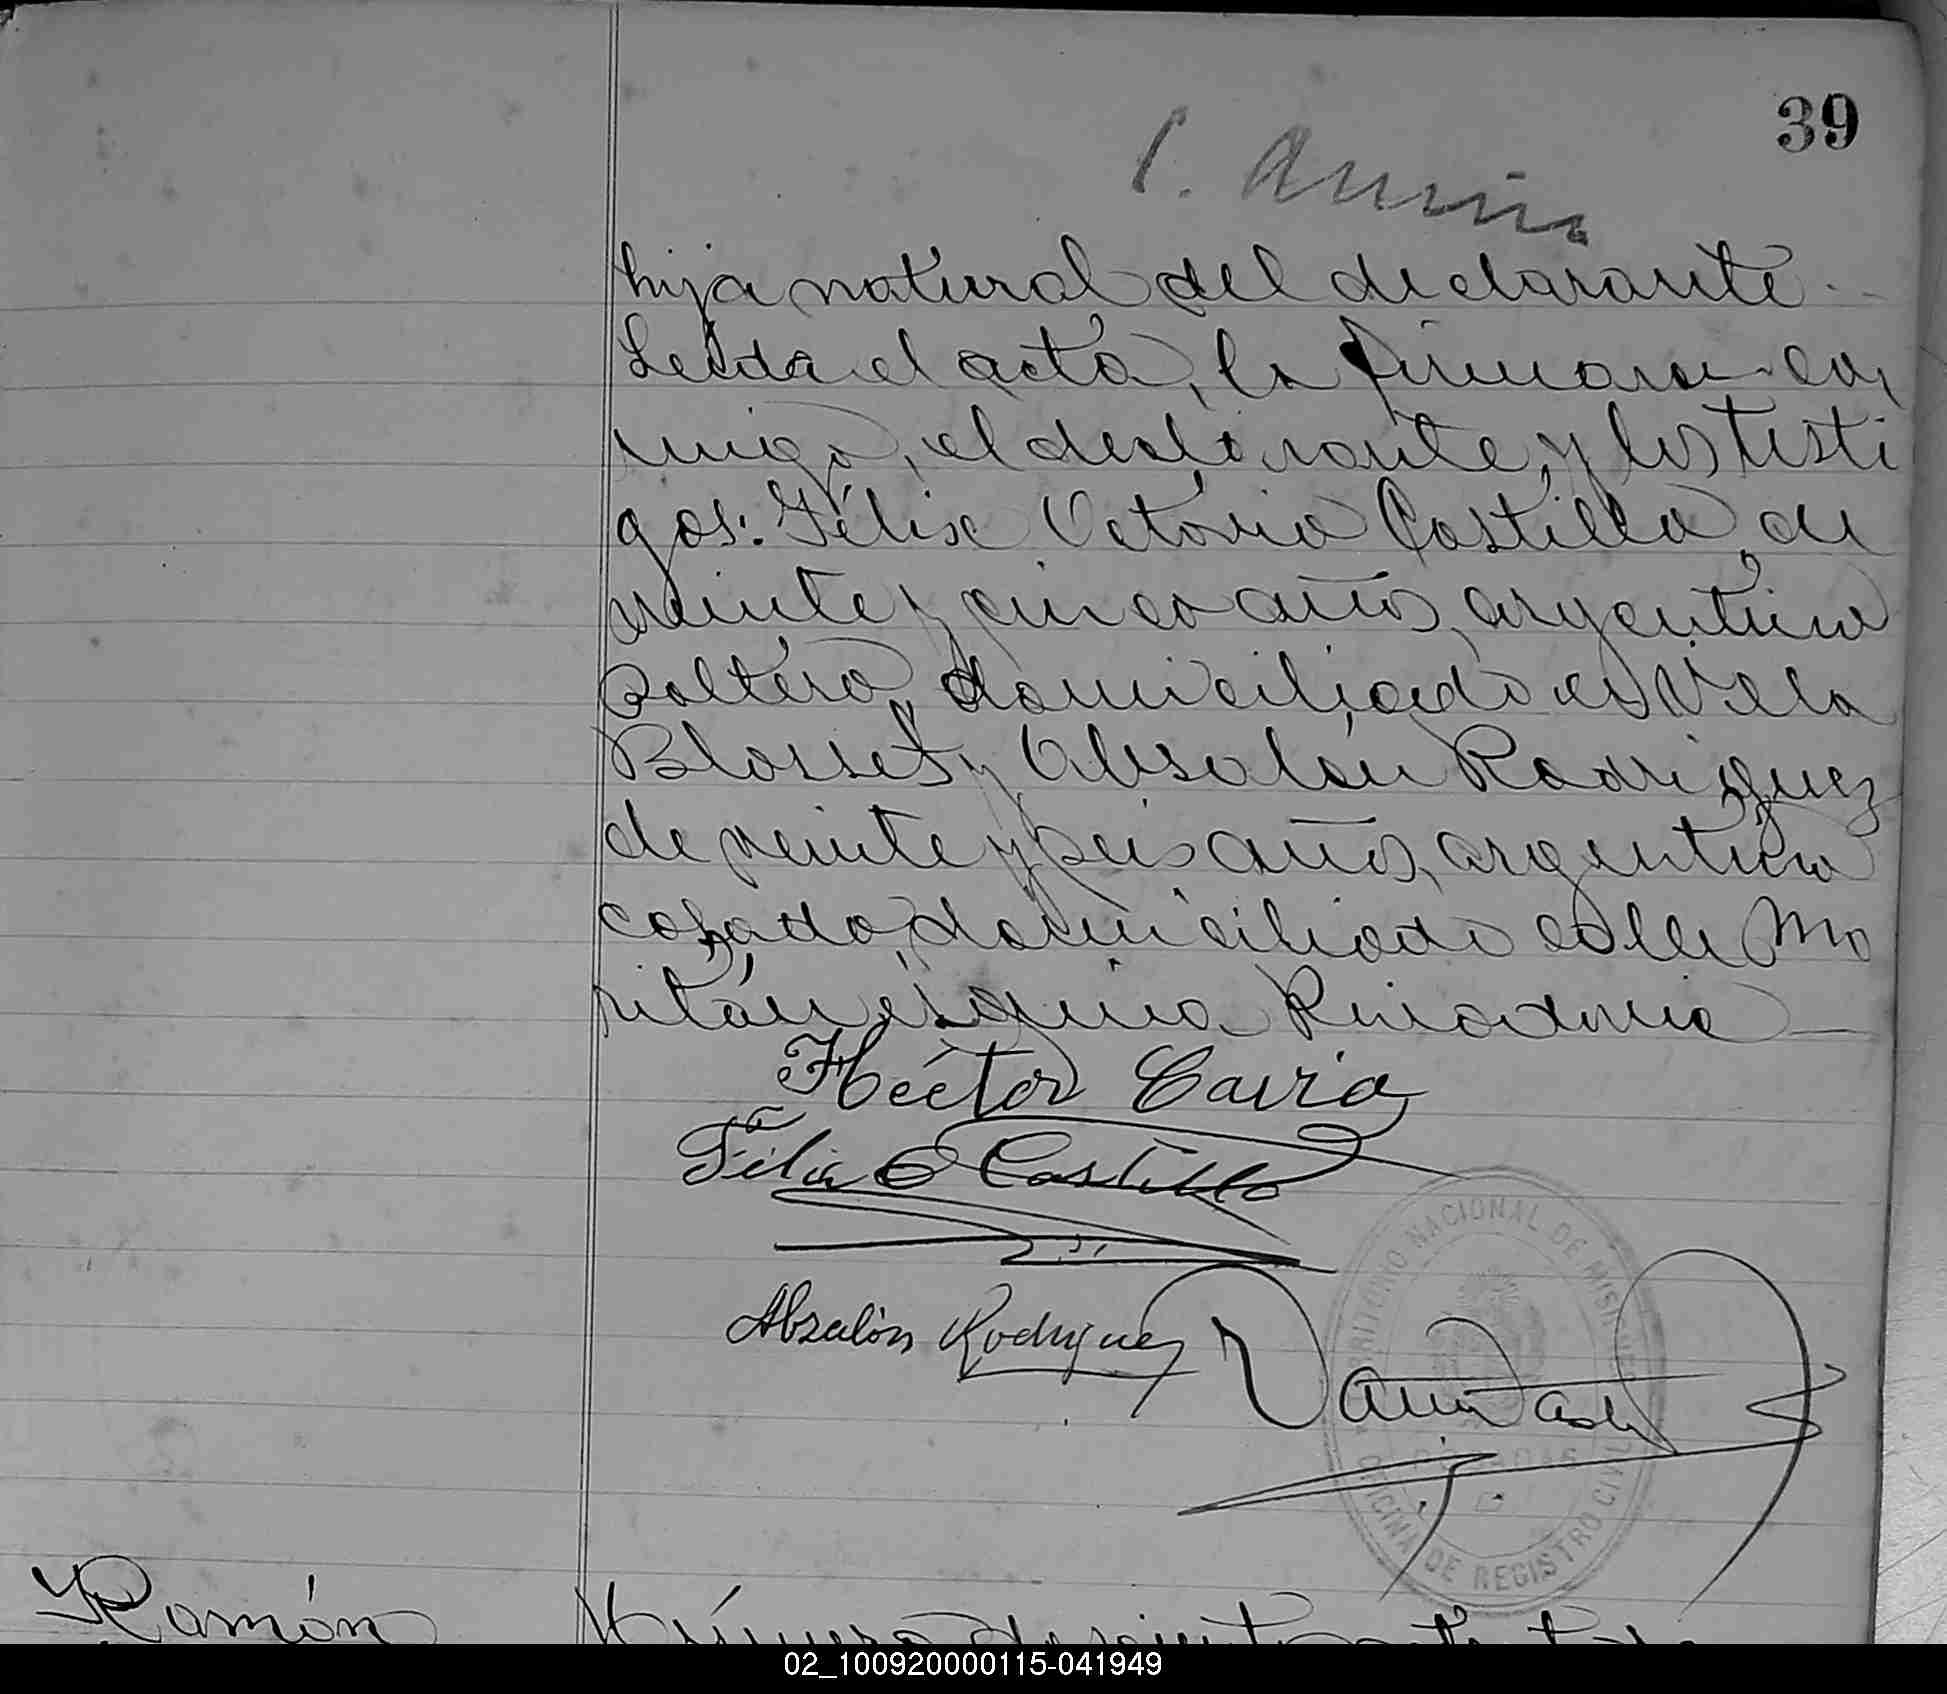 39
hija natural del declarante.
Leida el acta, la firmaron con
migo, el declarante, y los testi
gos: Félix Octavio Castillo, de
veinte y cinco años, argentino
soltero, domiciliado en Villa
Blosset y Absalón Rodriguez
de veinte y seis años, argentino
casado, domiciliado calle
esquina Rivadavia
Héctor Cavia
Félix O Castillo
Absalón Rodriguez
TERRITORIO NACIONAL DE MISIONES
POSADAS
OFICINA DE REGISTRO CIVIL
Ramón
Número
02_100920000115-041949